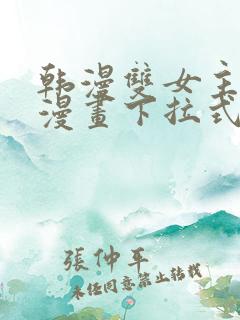 韩漫雙女主
漫畫下拉式
張仲平
未经同意禁止转载